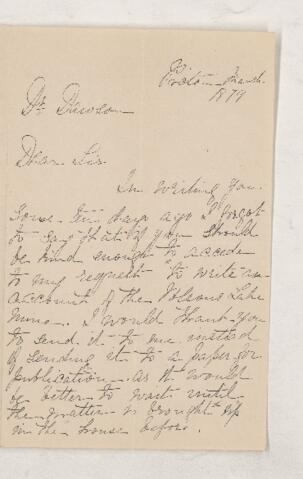 March
1879
Dr Dawson
Dear Sir.
In writing you
some ten days ago I forgot
to say that if you should
be kind enough to accede
to my request to write an
account of the Lake
I would thank you
to send it to me instead
of sending it to a paper for
publication as it would
be better to wait until
the matter is brought up
in the house before.